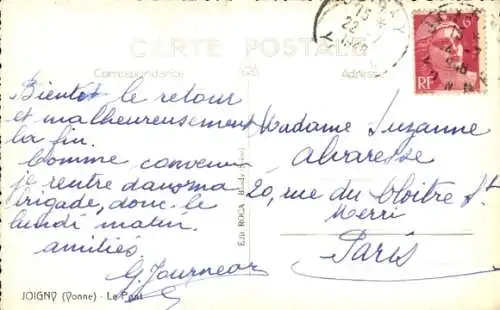 CARTE POSTALE
Correspondance
Adresse
Bientôt le retour
et malheureusement
la fin.
Comme convenu
je rentre dans ma
brigade, donc le
lundi matin.
amitiés
G. Journeaux
Madame Suzanne
Alvaresse
20, rue du Cloître St
Merri
Paris
RF
JOIGNY (Yonne) - Le Pont